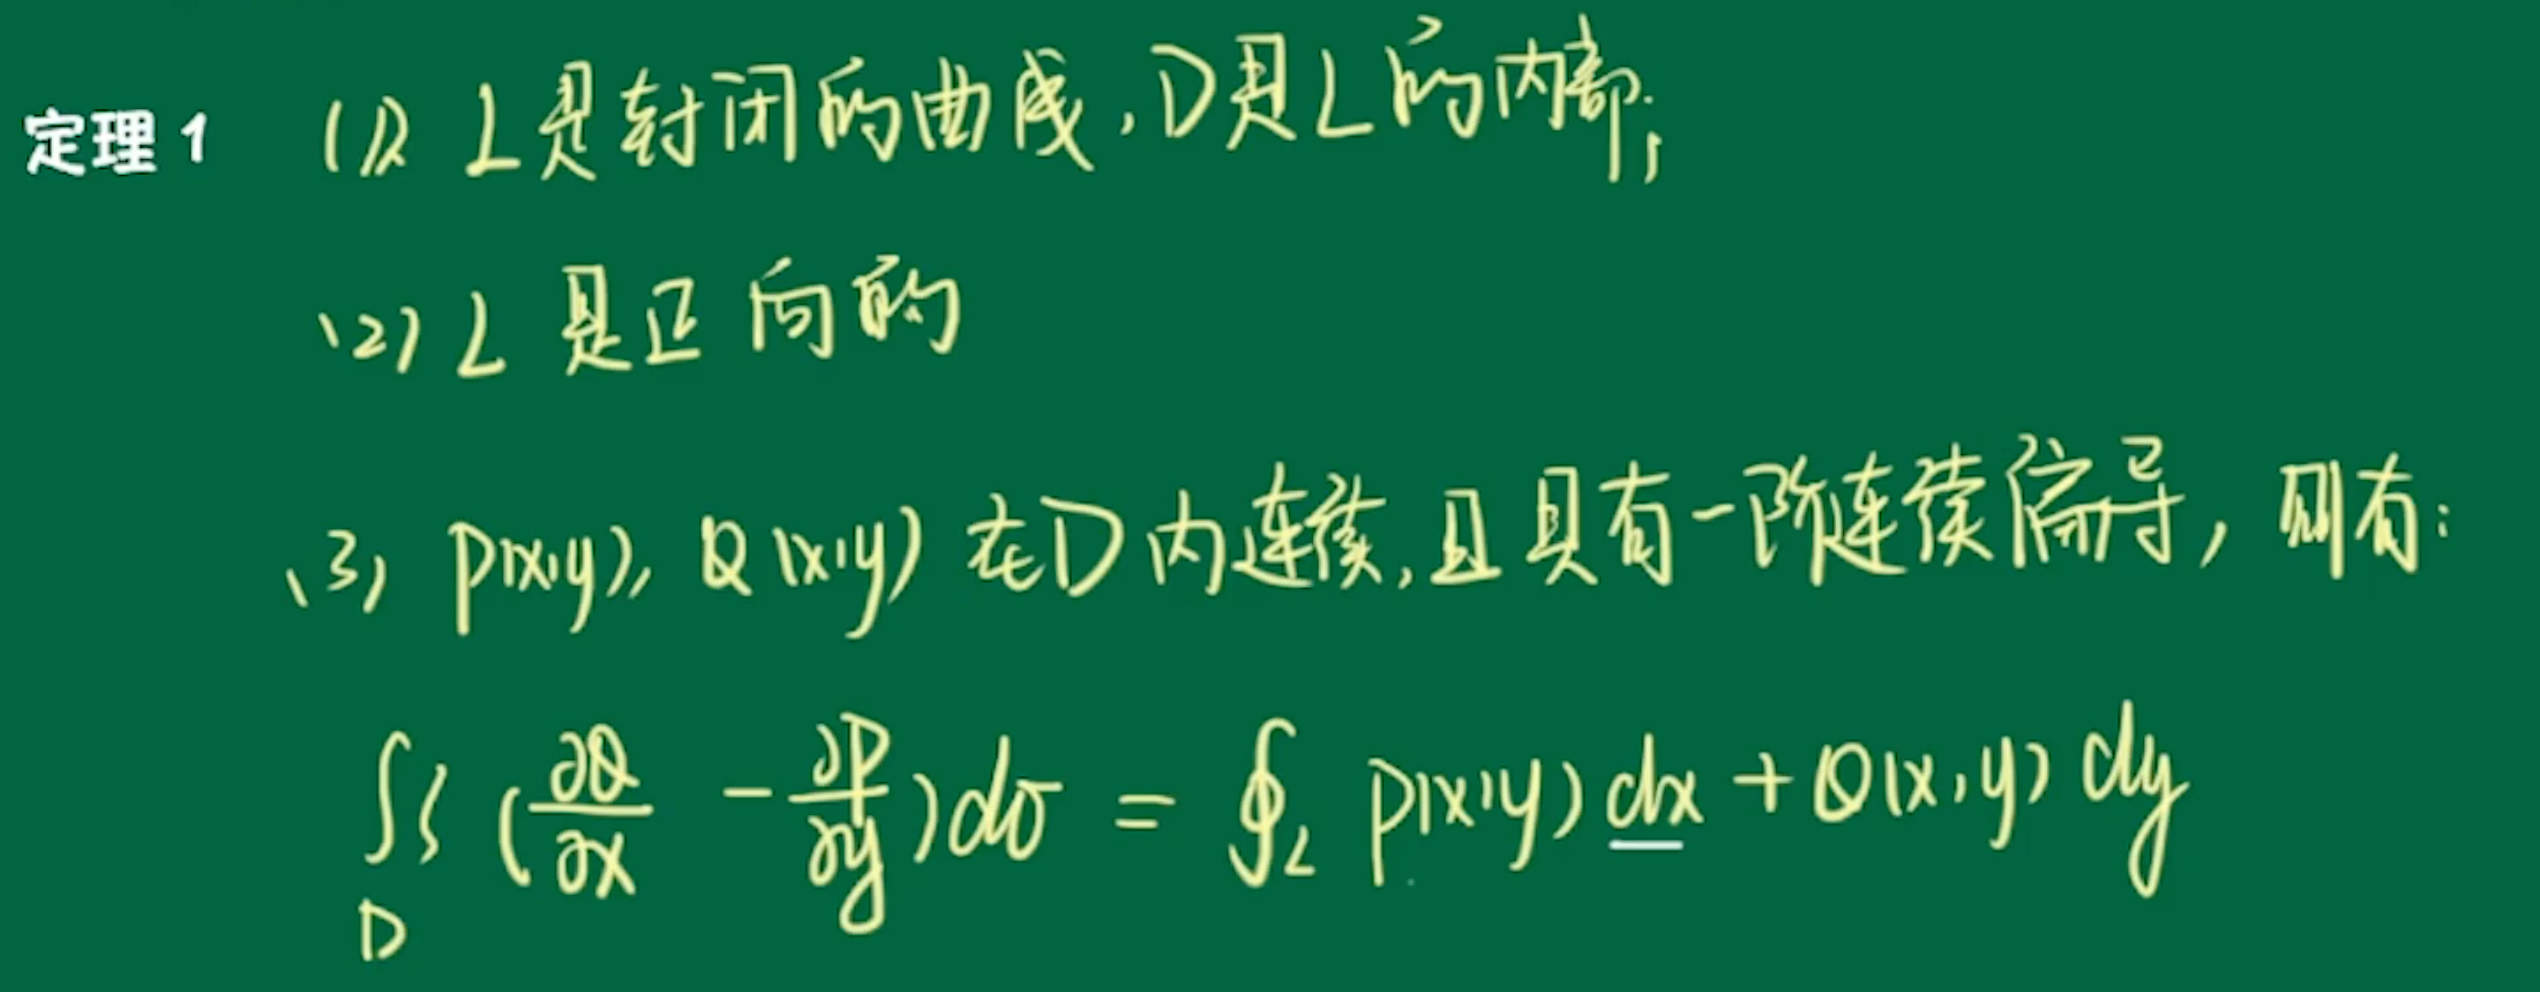 定理1 (1) L是封闭的曲线,D是L的内部;
(2) L是正向的
(3) P(x,y), Q(x,y) 在D内连续,且具有一阶连续偏导,则有:
∬_D (∂Q/∂x - ∂P/∂y)dσ = ∮_L P(x,y)dx + Q(x,y)dy